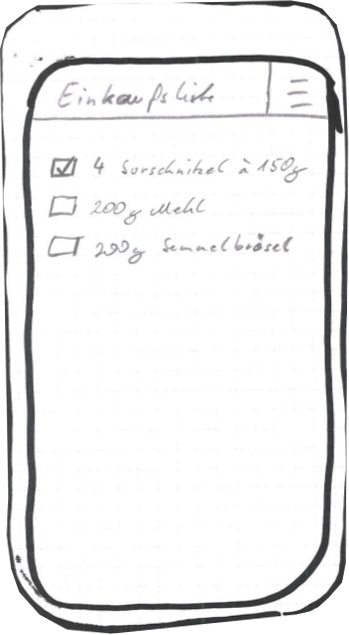 Einkaufsliste
4 Surschnitzel à 150g
200g Mehl
200g Semmelbrösel